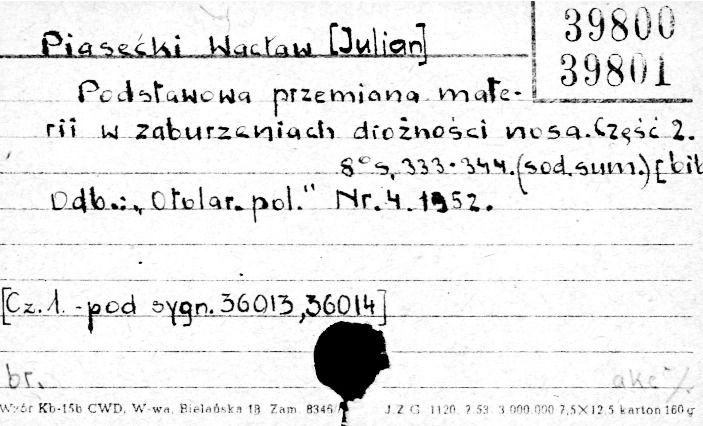 39800
39801
Piasecki Wacław [Julian]
Podstawowa przemiana mate-
rii w zaburzeniach drożności nosa. Część 2.
8° s. 333-344. (sod. sum.) [bib
Odb.: „Otolar. pol." Nr. 4. 1952.
[Cz. 1. - pod sygn. 36013, 36014]
br.
akc
Wzór Kb-15b CWD, W-wa, Bielańska 18 Zam. 8346 J.Z G. 1120. 7.53. 3 000.000 7,5×12,5 karton 160 g